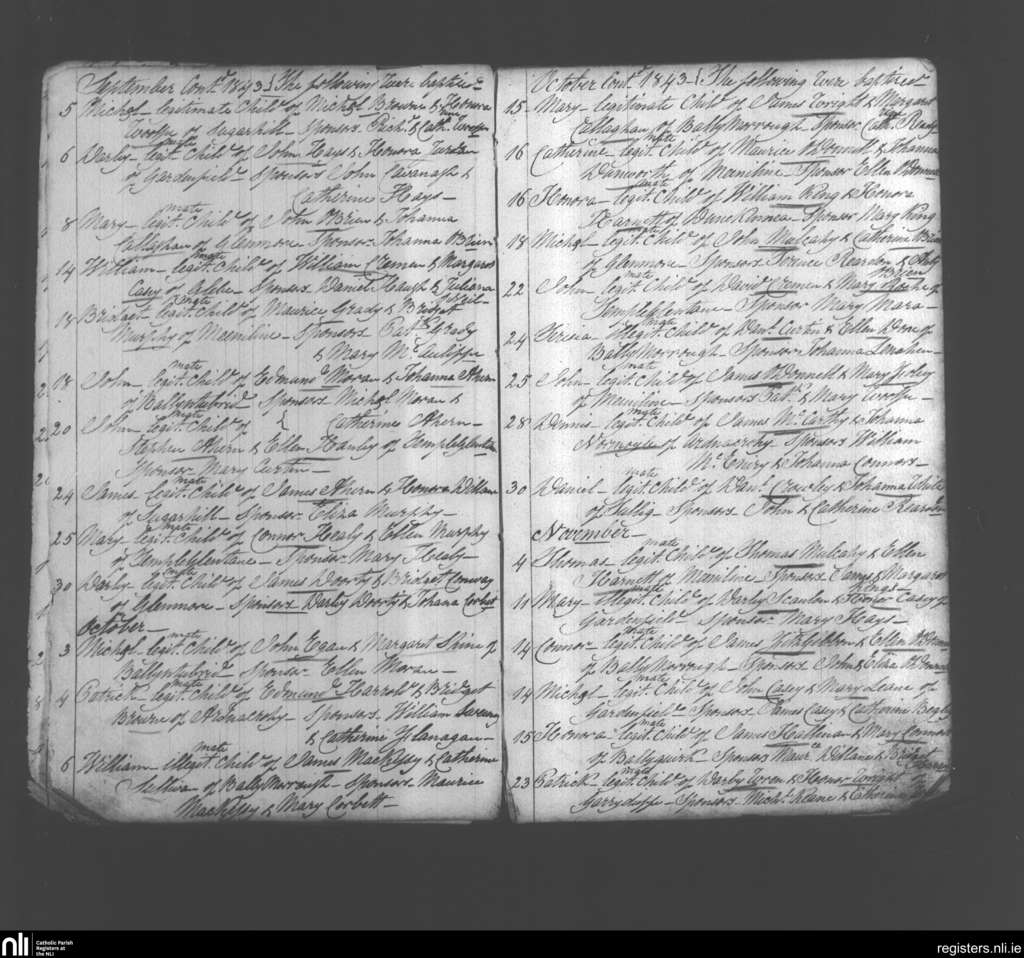 September Cont.d 1843 The following were baptized
5 Michol legitimate Child of Michol Browne & Honora
Woofe of Sugarhill - Sponsors Rich.d & Cath.ne Woofe
6 Darby - legit.mate Child of John Hays & Honora
of Gardenfield Sponsors John Cavanagh &
Catherine Hays -
8 Mary - legit.mate Child of John OBrien & Johanna
Callaghan of Glenmore Sponsor Johanna OBrien
14 William - legit.mate Child of William Cremen & Margaret
Casey of Sponsors Daniel & Juliana
18 Bridget legit.mate Child of Maurice Grady & Bridget
Murphy of Meeniline - Sponsors Pat.k Grady
& Mary Mc
18 John - legit.mate Child of Edmund Moran & Johanna Ahern
of Ballyntubrid Sponsors Michol Moran &
Catherine Ahern -
20 John legit.mate Child of {
Stephen Ahern & Ellen Hanly of Templeglentan
Sponsor Mary Curtin -
24 James - legit.mate Child of James Ahern & Honora Dillane
of Sugarhill - Sponsor Eliza Murphy -
25 Mary legit.mate Child of Connor Healy & Ellen Murphy
of Templeglentane - Sponsor Mary Healy -
30 Darby - legit.mate Child of James Doorty & Bridget Conway
of Glenmore - Sponsors Darby Doorty & Johana Corbet
October -
3 Michol - legit.mate Child of John Egan & Margaret Shine of
Ballyntubrid Sponsor Ellen Moran -
4 Patrick - legit.mate Child of Edmund Harrold & Bridget
Browne of Ardnacrohy - Sponsors William
& Catherine Flanagan -
6 William illegit.mate Child of James Mackessy & Catherine
of BallyMorrough - Sponsors Maurice
Mackessy & Mary Corbett -
October Cont.d 1843 The following were baptized
15 Mary - legitimate Child of James Wright & Margaret
Callaghan of BallyMorrough Sponsor Cath.
16 Catherine - legit.mate Child of Maurice ODonnell & Johanna
Danworth of Meeniline Sponsor Ellen
16 Honora - legit.mate Child of William King & Honora
Harnett of Sponsor Mary King
18 Michol - legit.mate Child of John Mulcahy & Catherine Brien
of Glenmore - Sponsors Reardon &
OBrien
22 John - legit.mate Child of David Cremen & Mary Roche of
Templeglentane - Sponsor Mary Mara -
24 illegit.mate Child of Dan.l Curtin & Ellen Dore of
BallyMorrough - Sponsor Johanna Lenahen -
25 John - legit.mate Child of James ODonnell & Mary Foley
of Meeniline - Sponsors Pat.k & Mary Woofe -
28 Dennis - legit.mate Child of James McCarthy & Johanna
Normoyle of Ardnacrohy Sponsors William
McEniry & Johanna Connors -
30 Daniel - legit.mate Child of Dan.l Crowley & Johanna White
of Sponsors John & Catherine Reardon
November -
4 Thomas legit.mate Child of Thomas Mulcahy & Ellen
Harnett of Meeniline Sponsors James & Margaret
11 Mary - illegit.mate Child of Darby Scanlon & Honor Casey of
Gardenfield - Sponsor Mary Hays -
14 Connor - legit.mate Child of James Fitzgibbon & Ellen
of BallyMorrough - Sponsors John & Eliza
14 Michol - legit.mate Child of John Casey & Mary Leane of
Gardenfield Sponsors James Casey & Catherine Begly
15 Honora - legit.mate Child of James Hallinan & Mary Connors
of Sponsors Maur.ce Dillane & Bridget
23 Patrick - legit.mate Child of Darby & Honor Wright of
Garryduffe - Sponsors Mich.l Keane & Catherine
nli
Catholic Parish
Registers at
the NLI
registers.nli.ie